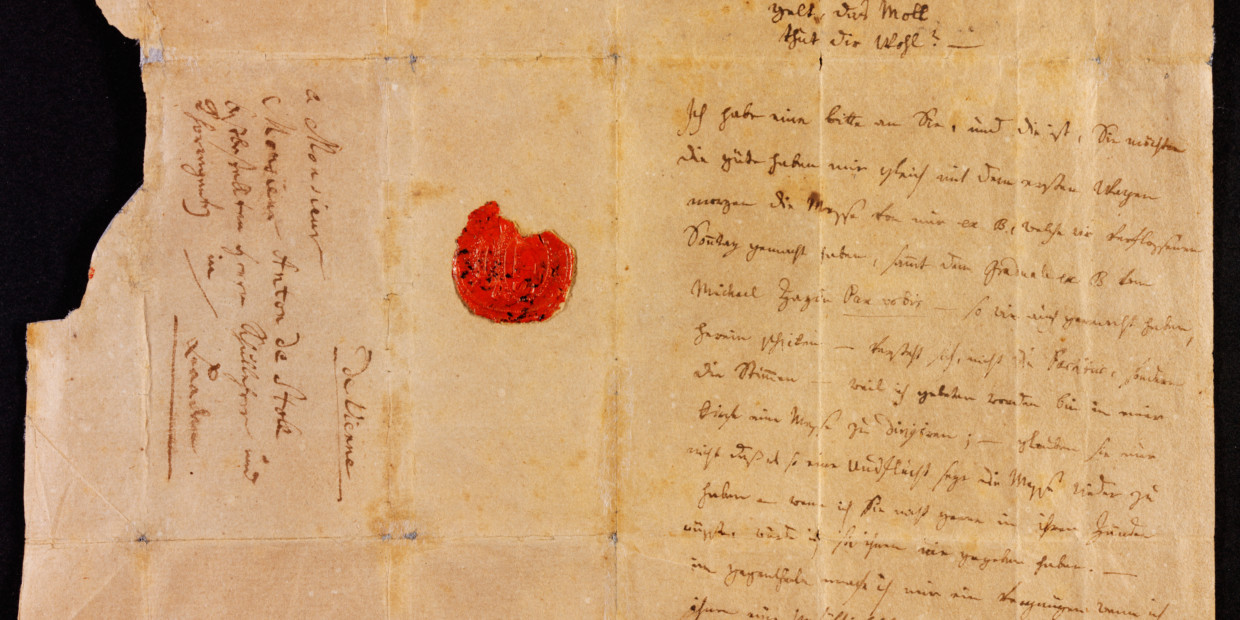 gelt, das Moll
thut dir Wohl? —
Ich habe eine bitte an Sie, und die ist, Sie möchten
die güte haben mir gleich mit dem ersten Wagen
morgen die Messe von mir ex B, welche wir verflossenen
Sonntag gemacht haben, samt dem Graduale ex B vom
Michael Haydn Pax vobis so wir auch gemacht haben,
herein schicken — versteht sich, nicht die Partitur, sondern
die Stimmen — weil ich gebeten worden bin in einer
kirche eine Messe zu dirigiren; — glauben sie nur
nicht daß es so eine Ausflucht seye die Messe wieder zu
haben — wenn ich Sie nicht gerne in ihren Händen
wüsste, würde ich sie ihnen nie gegeben haben. —
im gegentheile mache ich mir ein Vergnügen wenn ich
ihnen eine
à Monsieur
Monsieur Anton de Stoll
in
Baaden.
de Vienne